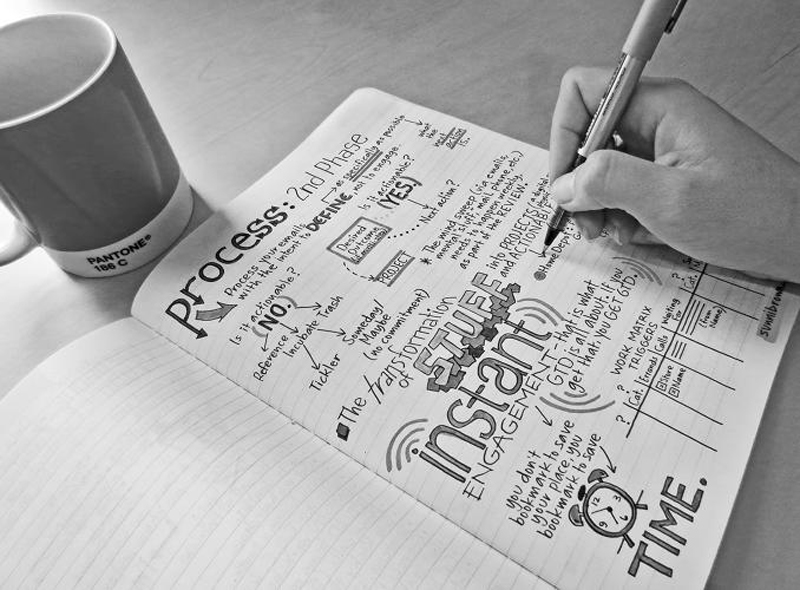 PANTONE®
186 C
Process: 2nd Phase
Process your emails
with the intent to DEFINE, not to engage.
as specifically as possible
what
the
next
action
is.
Is it actionable?
(NO.)
Reference
Incubate
Trash
Tickler
Someday/
Maybe
(no commitment)
Is it actionable?
(YES)
Desired
Outcome
PROJECT
Next action?
* The mind sweep (via emails,
mental "stuff", mail, phone, etc.)
needs to happen weekly,
as part of the REVIEW.
The Transformation
of STUFF into PROJECTS
and ACTIONABLE
@Home
instant
ENGAGEMENT - that is what
GTD is all about. If you
get that, you GET GTD.
you don't
bookmark to save
your place, you
bookmark to save
TIME.
12
3
6
9
WORK MATRIX
TRIGGERS
?
?
?
Cat.
Errands
Calls
Waiting
For
Store
Name
(from
Name)
sunnibrown